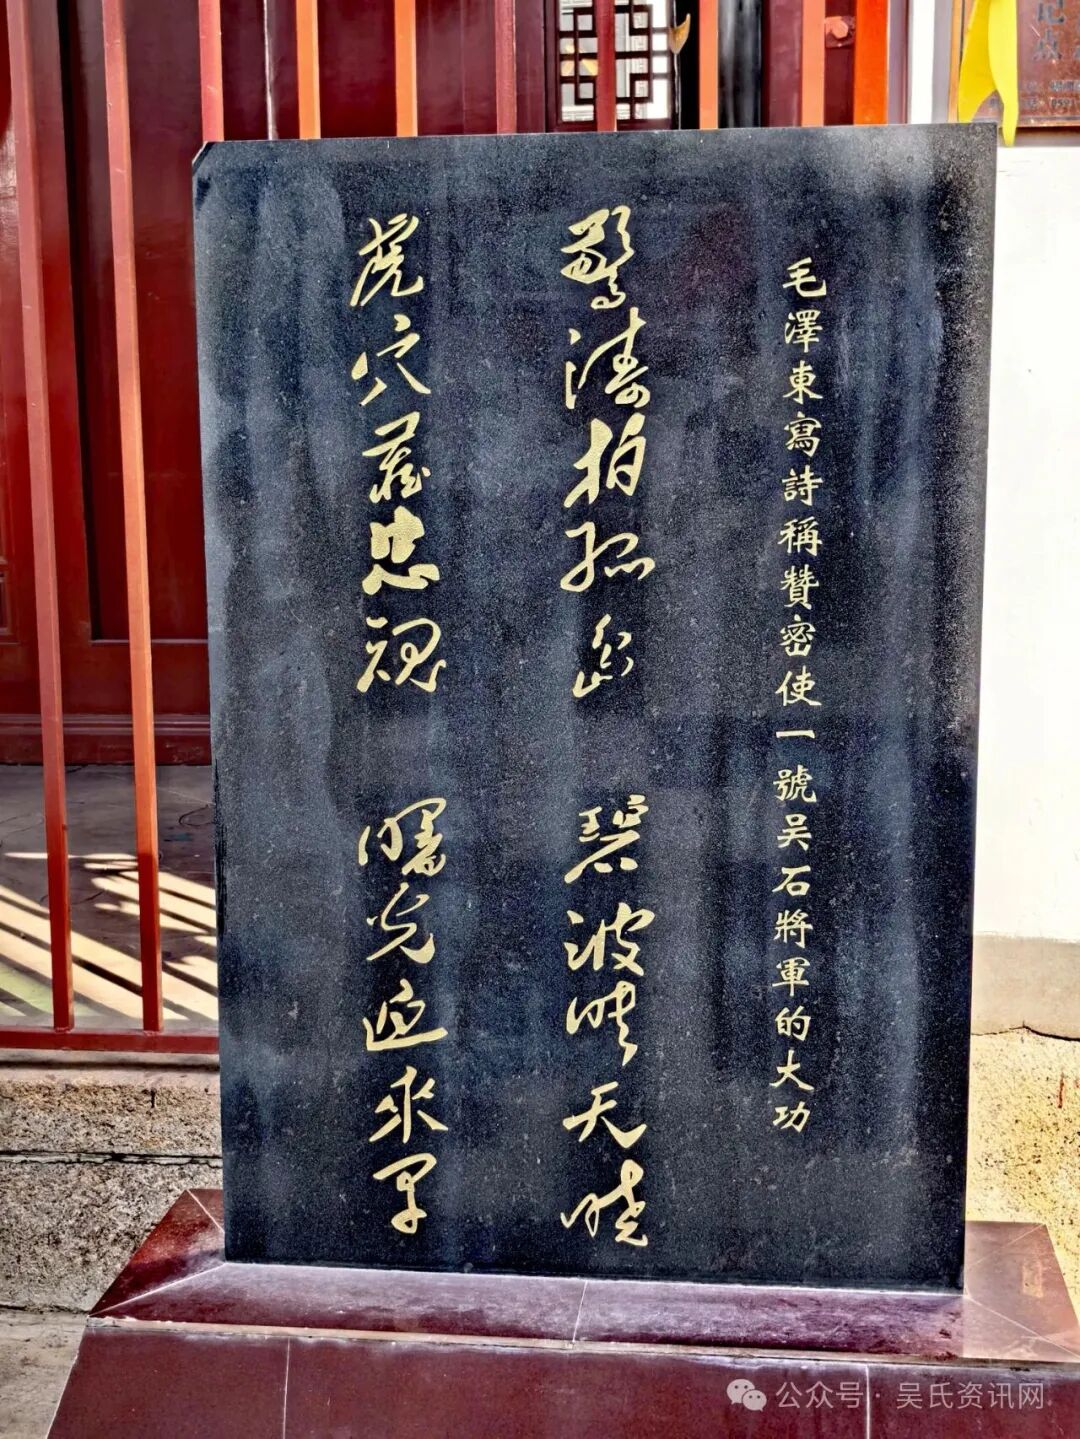 毛澤東寫詩稱贊密使一號吴石將軍的大功
驚濤拍孤島 碧波映天曉
虎穴藏忠魂 曙光迎來早
记点
公众号 · 吴氏资讯网